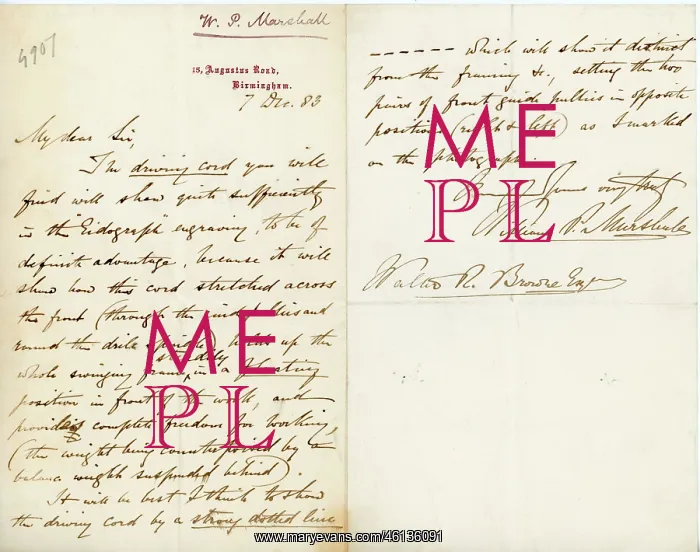 W. P. Marshall
4907
15, Augustus Road,
Birmingham.
7 Dec. 83
My dear Sir,
The driving cord you will
find will show quite sufficiently
in the "Eidograph" engraving, to be of
definite advantage, because it will
show how this cord stretched across
the front (through the guide pullies and
round the drill spindle) holds up the
whole swinging frame, steadily in a floating
position in front of the work, and
provides complete freedom for working,
(the weight being counterpoised by a
balance weight suspended behind).
It will be best I think to show
the driving cord by a strong dotted line
- - - - - - which will show it distinct
from the framing &c., setting the two
pairs of front guide pullies in opposite
position (right & left) as I marked
on the photograph.
Yours very truly
William P. Marshall
Walter R. Browne Esqre
ME
PL
ME
PL
www.maryevans.com/46136091